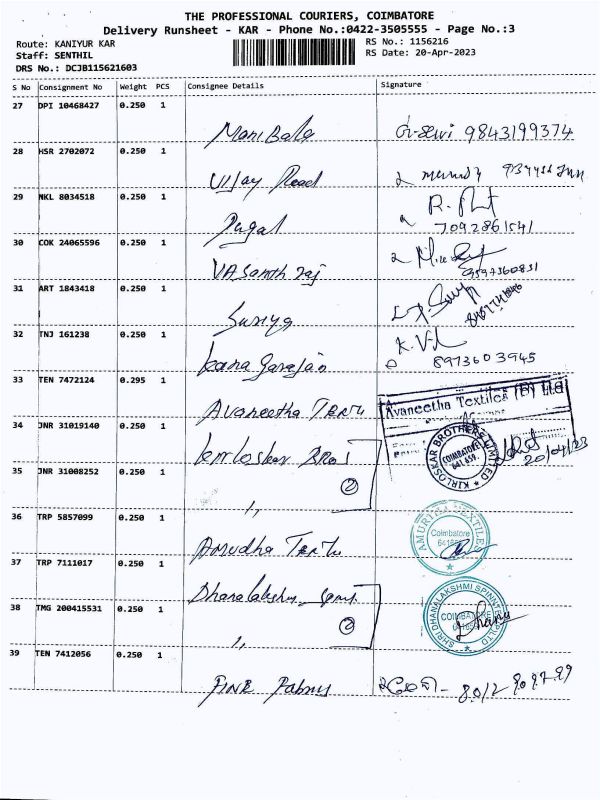 THE PROFESSIONAL COURIERS, COIMBATORE
Delivery Runsheet - KAR - Phone No.:0422-3505555 - Page No.:3
Route: KANIYUR KAR
RS No.: 1156216
Staff: SENTHIL
RS Date: 20-Apr-2023
DRS No.: DCJB115621603
S No Consignment No Weight PCS Consignee Details Signature
27 DPI 10468427 0.250 1
Mani Bala 9843199374
28 HSR 2702072 0.250 1
Vijay Road
29 NKL 8034518 0.250 1
R.
Pugal 7092861541
30 COK 24065596 0.250 1
VASanth raj 9597360831
31 ART 1843418 0.250 1
Suriya
32 TNJ 161238 0.250 1
K.
Kanagarajan 8973603945
33 TEN 7472124 0.295 1
Avaneetha Textiles (P) Ltd
Avaneetha Textu
34 JNR 31019140 0.250 1
Kirloskar Bros
KIRLOSKAR BROTHERS LIMITED
COIMBATORE
641 659.
20/04/23
35 JNR 31008252 0.250 1
2
,,
36 TRP 5857099 0.250 1
Anrudha Textu
AMURTGA TEXTILE
Coimbatore
37 TRP 7111017 0.250 1
Dhanalakshmi Spint
38 TMG 200415531 0.250 1
2
,,
SHRI DHANALAKSHMI SPINNTEX (P) LTD
COIMBATORE
Dhanu
39 TEN 7412056 0.250 1
Fine Fabrics